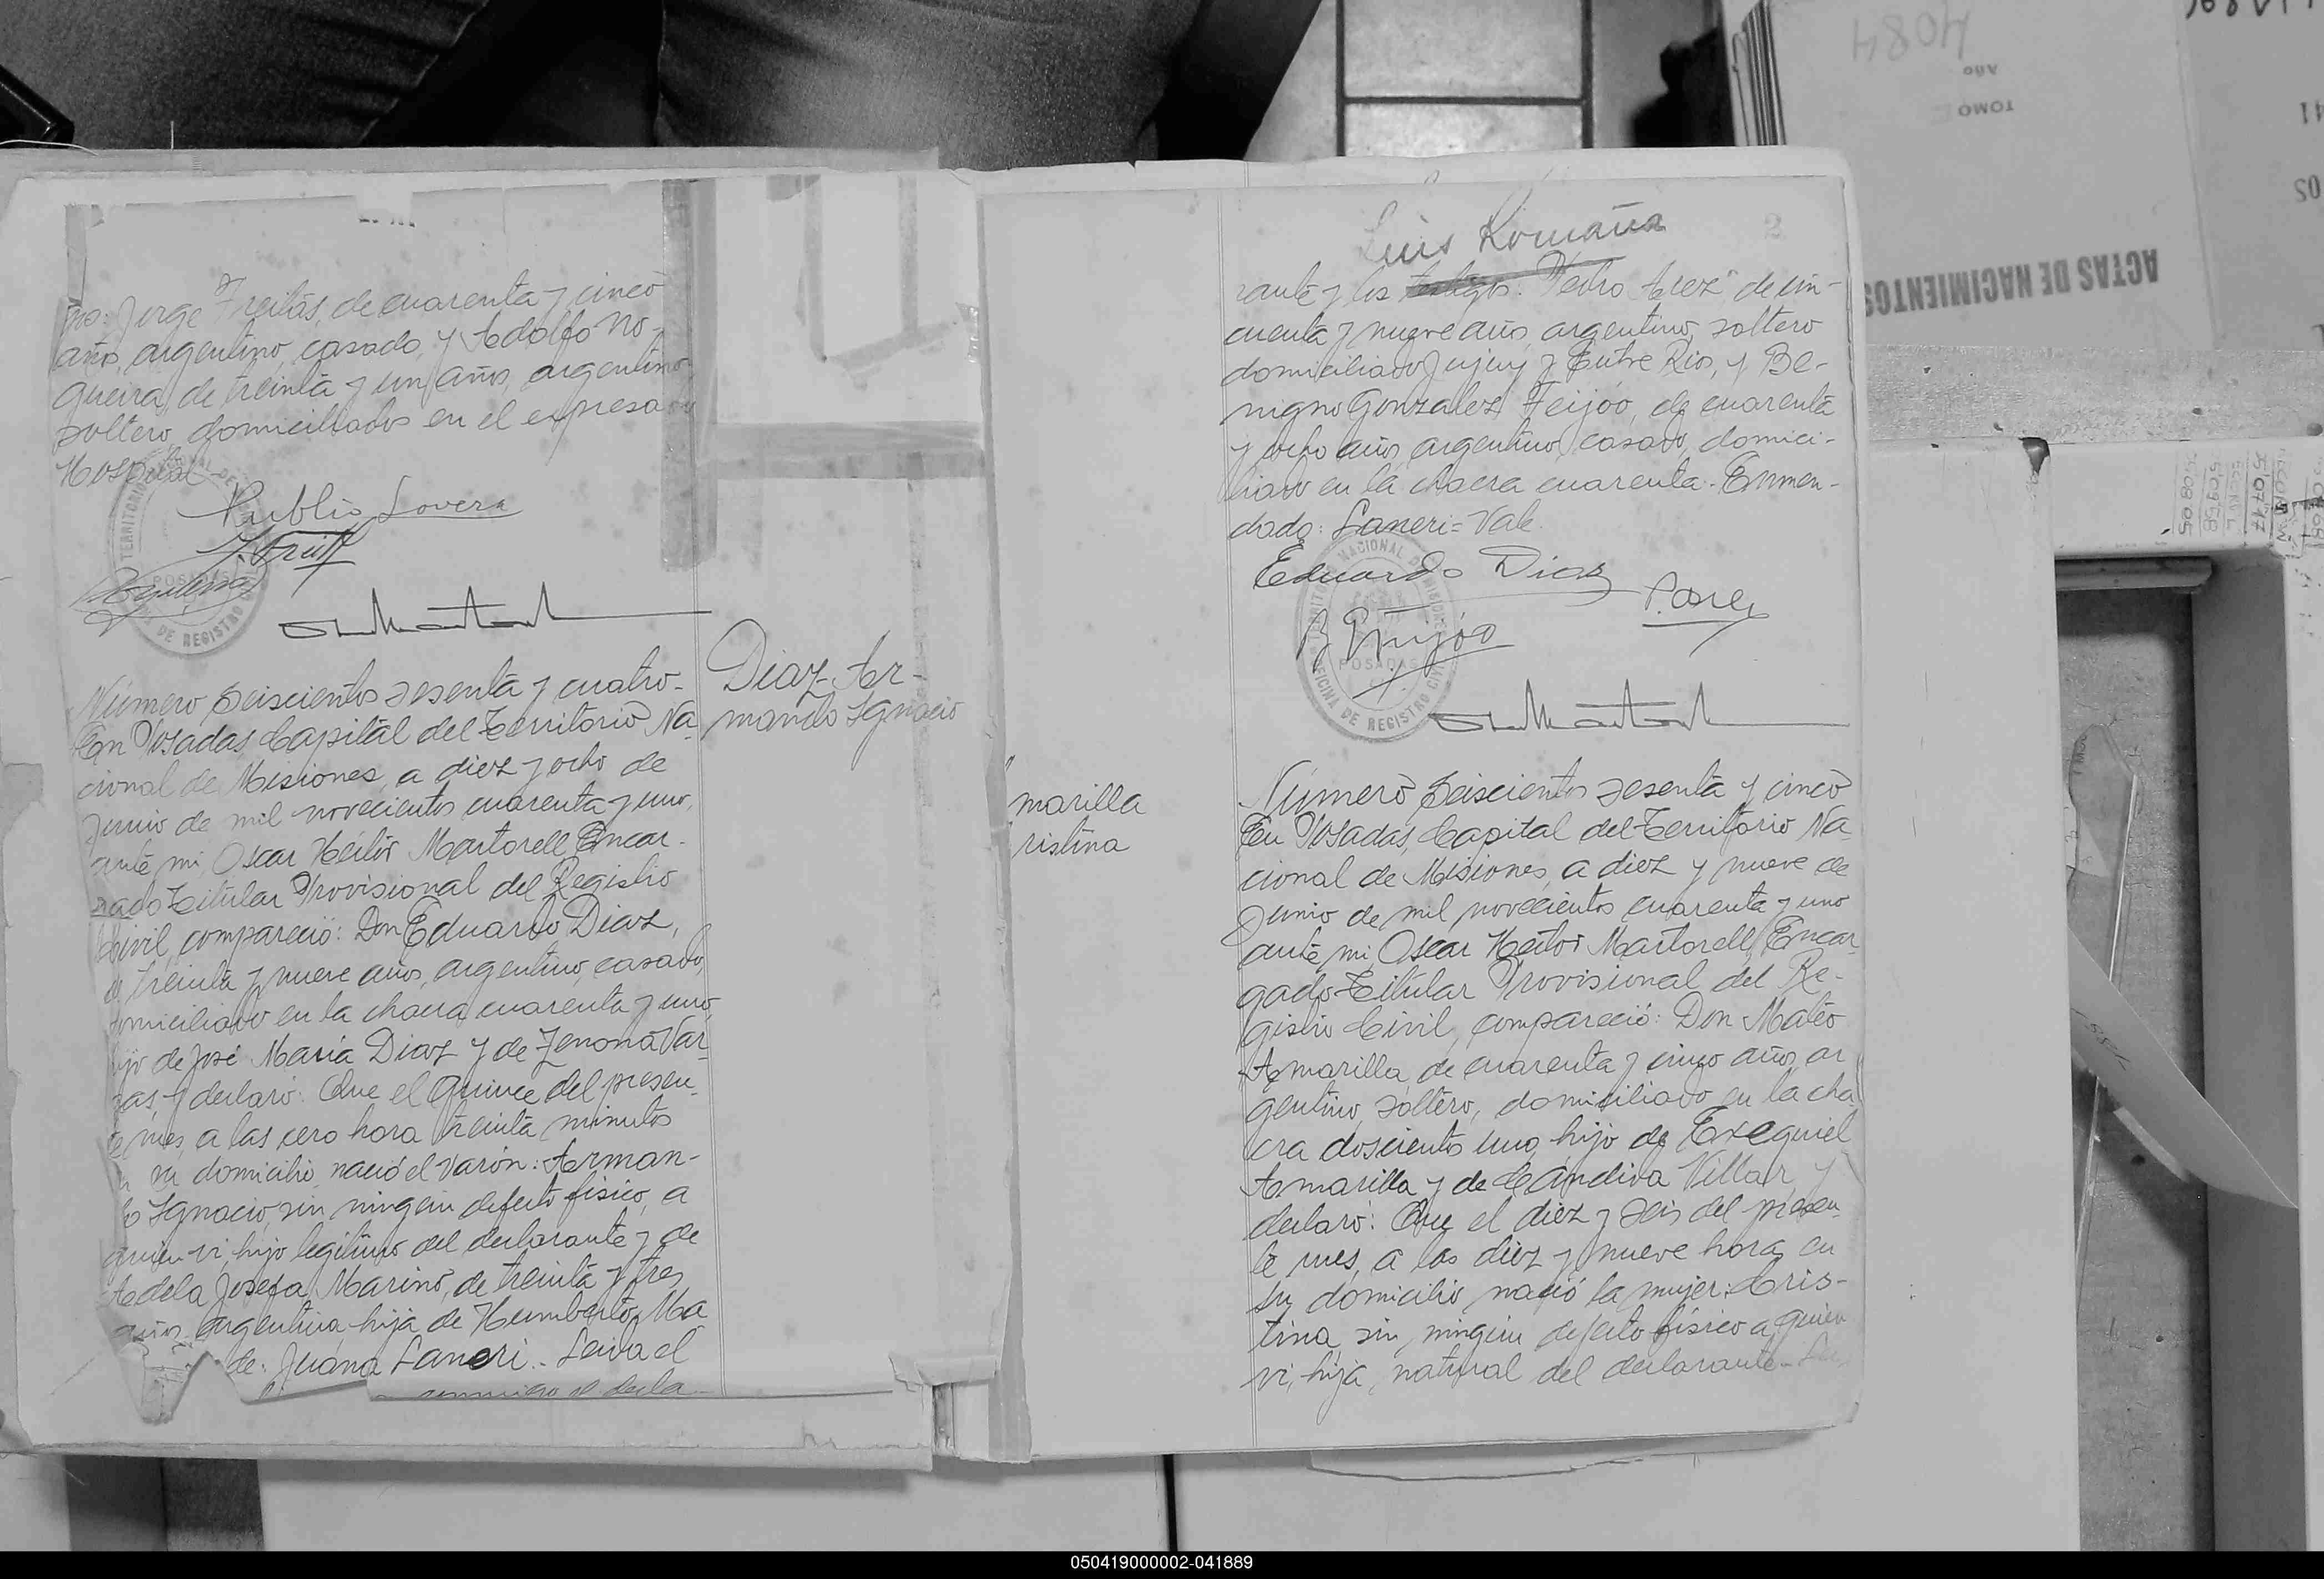 Jorge Freitas, de cuarenta y cinco
años, argentino, casado, y Adolfo No-
gueira, de treinta y un años, argentino
soltero, domiciliados en el expresado
Hospital
Publio Lovera
Número seiscientos sesenta y cuatro-
En Posadas Capital del Territorio Na-
cional de Misiones, a diez y ocho de
Junio de mil novecientos cuarenta y uno,
ante mi, Oscar Héctor Martorell Encar-
gado Titular Provisional del Registro
Civil, compareció: Don Eduardo Diaz,
de treinta y nueve años, argentino, casado,
domiciliado en la chacra cuarenta y uno,
hijo de José Maria Diaz y de Zenona Var-
gas, y declaró: Que el quince del presen-
te mes, a las cero hora treinta minutos
en su domicilio, nació el varón: Arman-
do Ignacio, sin ningún defecto físico, a
quien vi, hijo legítimo del declarante y de
Adela Josefa Marino, de treinta y tres
años argentina hija de Humberto Ma
de: Juana Laneri.- Leida el
conmigo el decla-
Diaz Ar-
mando Ignacio
Luis Romaña
2
rante y los testigos: Pedro Arez de cin-
cuenta y nueve años, argentino, soltero
domiciliado Jujuy y Entre Rios, y Be-
nigno Gonzalez Feijóo, de cuarenta
y ocho años, argentino, casado, domici-
liado en la chacra cuarenta.- Enmen-
dado: Laneri= Vale.
Eduardo Diaz
P. Arez
B G Feijóo
TERRITORIO NACIONAL DE MISIONES
POSADAS
OFICINA DE REGISTRO CIVIL
marilla
ristina
Número seiscientos sesenta y cinco
En Posadas, Capital del Territorio Na
cional de Misiones, a diez y nueve de
Junio de mil novecientos cuarenta y uno
ante mi Oscar Héctor Martorell, Encar
gado Titular Provisional del Re-
gistro Civil, compareció: Don Mateo
Amarilla, de cuarenta y cinco años, ar
gentino, soltero, domiciliado en la cha
cra doscientos uno, hijo de Exequiel
Amarilla y de Cándida Villar, y
declaró: Que el diez y seis del presen-
te mes, a las diez y nueve horas, en
su domicilio nació la mujer: Cris-
tina, sin ningún defecto físico a quien
vi, hija, natural del declarante.-
4084
Año
TOMO
ACTAS DE NACIMIENTOS
050419000002-041889